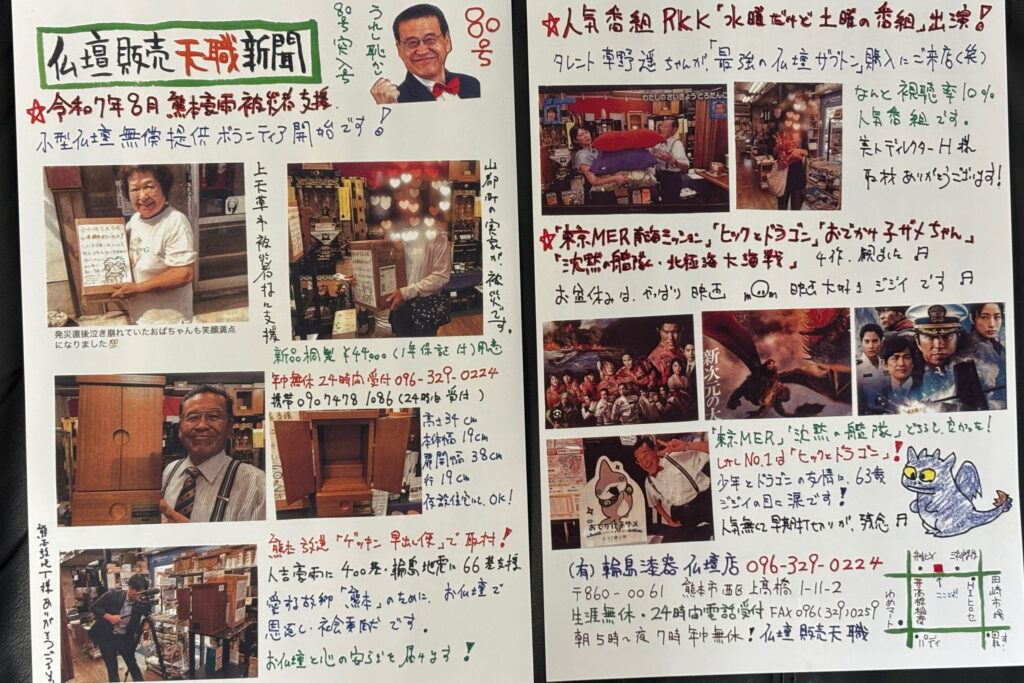 仏壇販売天職新聞
80号突入号
うれし恥ずかし
80号
☆令和7年8月 熊本豪雨被災者支援。
小型仏壇 無償提供ボランティア開始です!
上天草市被災者様に支援
山都町の実家が、被災です。
発災直後泣き崩れていたおばちゃんも笑顔満点
になりました💯
新品桐製 ¥44,000(1年保証付)用意
年中無休 24時間受付 096-329-0224
携帯 090 7478 1086 (24時間受付)
高さ34cm
本体幅 19cm
展開幅 38cm
奥行 19cm
仮設住宅にも、OK!
熊本放送 「ゲツキン 早出し便」で取材!
人吉豪雨に400基・輪島地震に66基支援
愛する故郷「熊本」のために、お仏壇で
恩返し・社会貢献です。
お仏壇と心の安らぎを届けます!
☆人気番組 RKK「水曜だけど土曜の番組」出演!
タレント 草野遥ちゃんが「最強の仏壇ザブトン」購入にご来店(笑)
なんと視聴率10%
人気番組です。
美人ディレクターH様
取材ありがとうございます!
☆「東京MER 南海ミッション」「ヒックとドラゴン」「おでかけ子ザメちゃん」
「沈黙の艦隊・北極海大海戦」 4作、観ました♬
お盆休みは、やっぱり映画 m(__)m 映画大好きジジイです♬
新次元の大
「東京MER」「沈黙の艦隊」どちらも、良かった!
しかしNo.1は「ヒックとドラゴン」!
少年とドラゴンの友情に、63歳
ジジイの目に涙です!
人気無くて早期打ち切りが、残念♬
おでかけ子ザメ
(有)輪島漆器仏壇店 096-329-0224
〒860-0061 熊本市西区上高橋1-11-2
生涯無休・24時間電話受付 FAX 096(329)0259
朝5時〜夜7時 年中無休! 仏壇販売天職
ゆめマート
ここ!
田崎市場